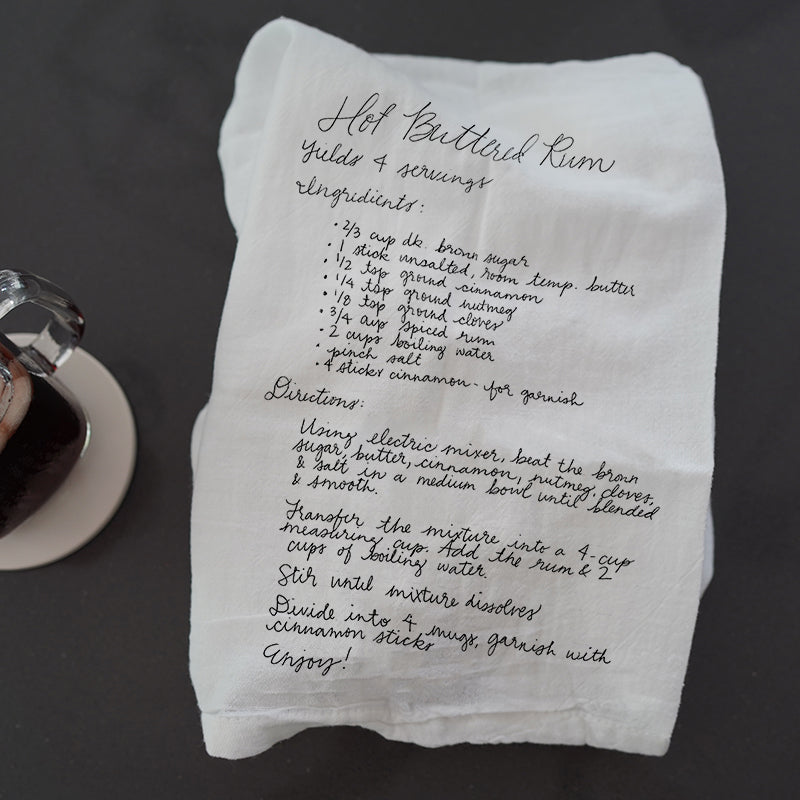 Hot Buttered Rum
Yields 4 servings
Ingredients:
• 2/3 cup dk. brown sugar
• 1 stick unsalted, room temp. butter
• 1/2 tsp ground cinnamon
• 1/4 tsp ground nutmeg
• 1/8 tsp ground cloves
• 3/4 cup spiced rum
• 2 cups boiling water
• pinch salt
• 4 sticks cinnamon - for garnish
Directions:
Using electric mixer, beat the brown
sugar, butter, cinnamon, nutmeg, cloves,
& salt in a medium bowl until blended
& smooth.
Transfer the mixture into a 4-cup
measuring cup. Add the rum & 2
cups of boiling water.
Stir until mixture dissolves
Divide into 4 mugs, garnish with
cinnamon sticks
Enjoy!